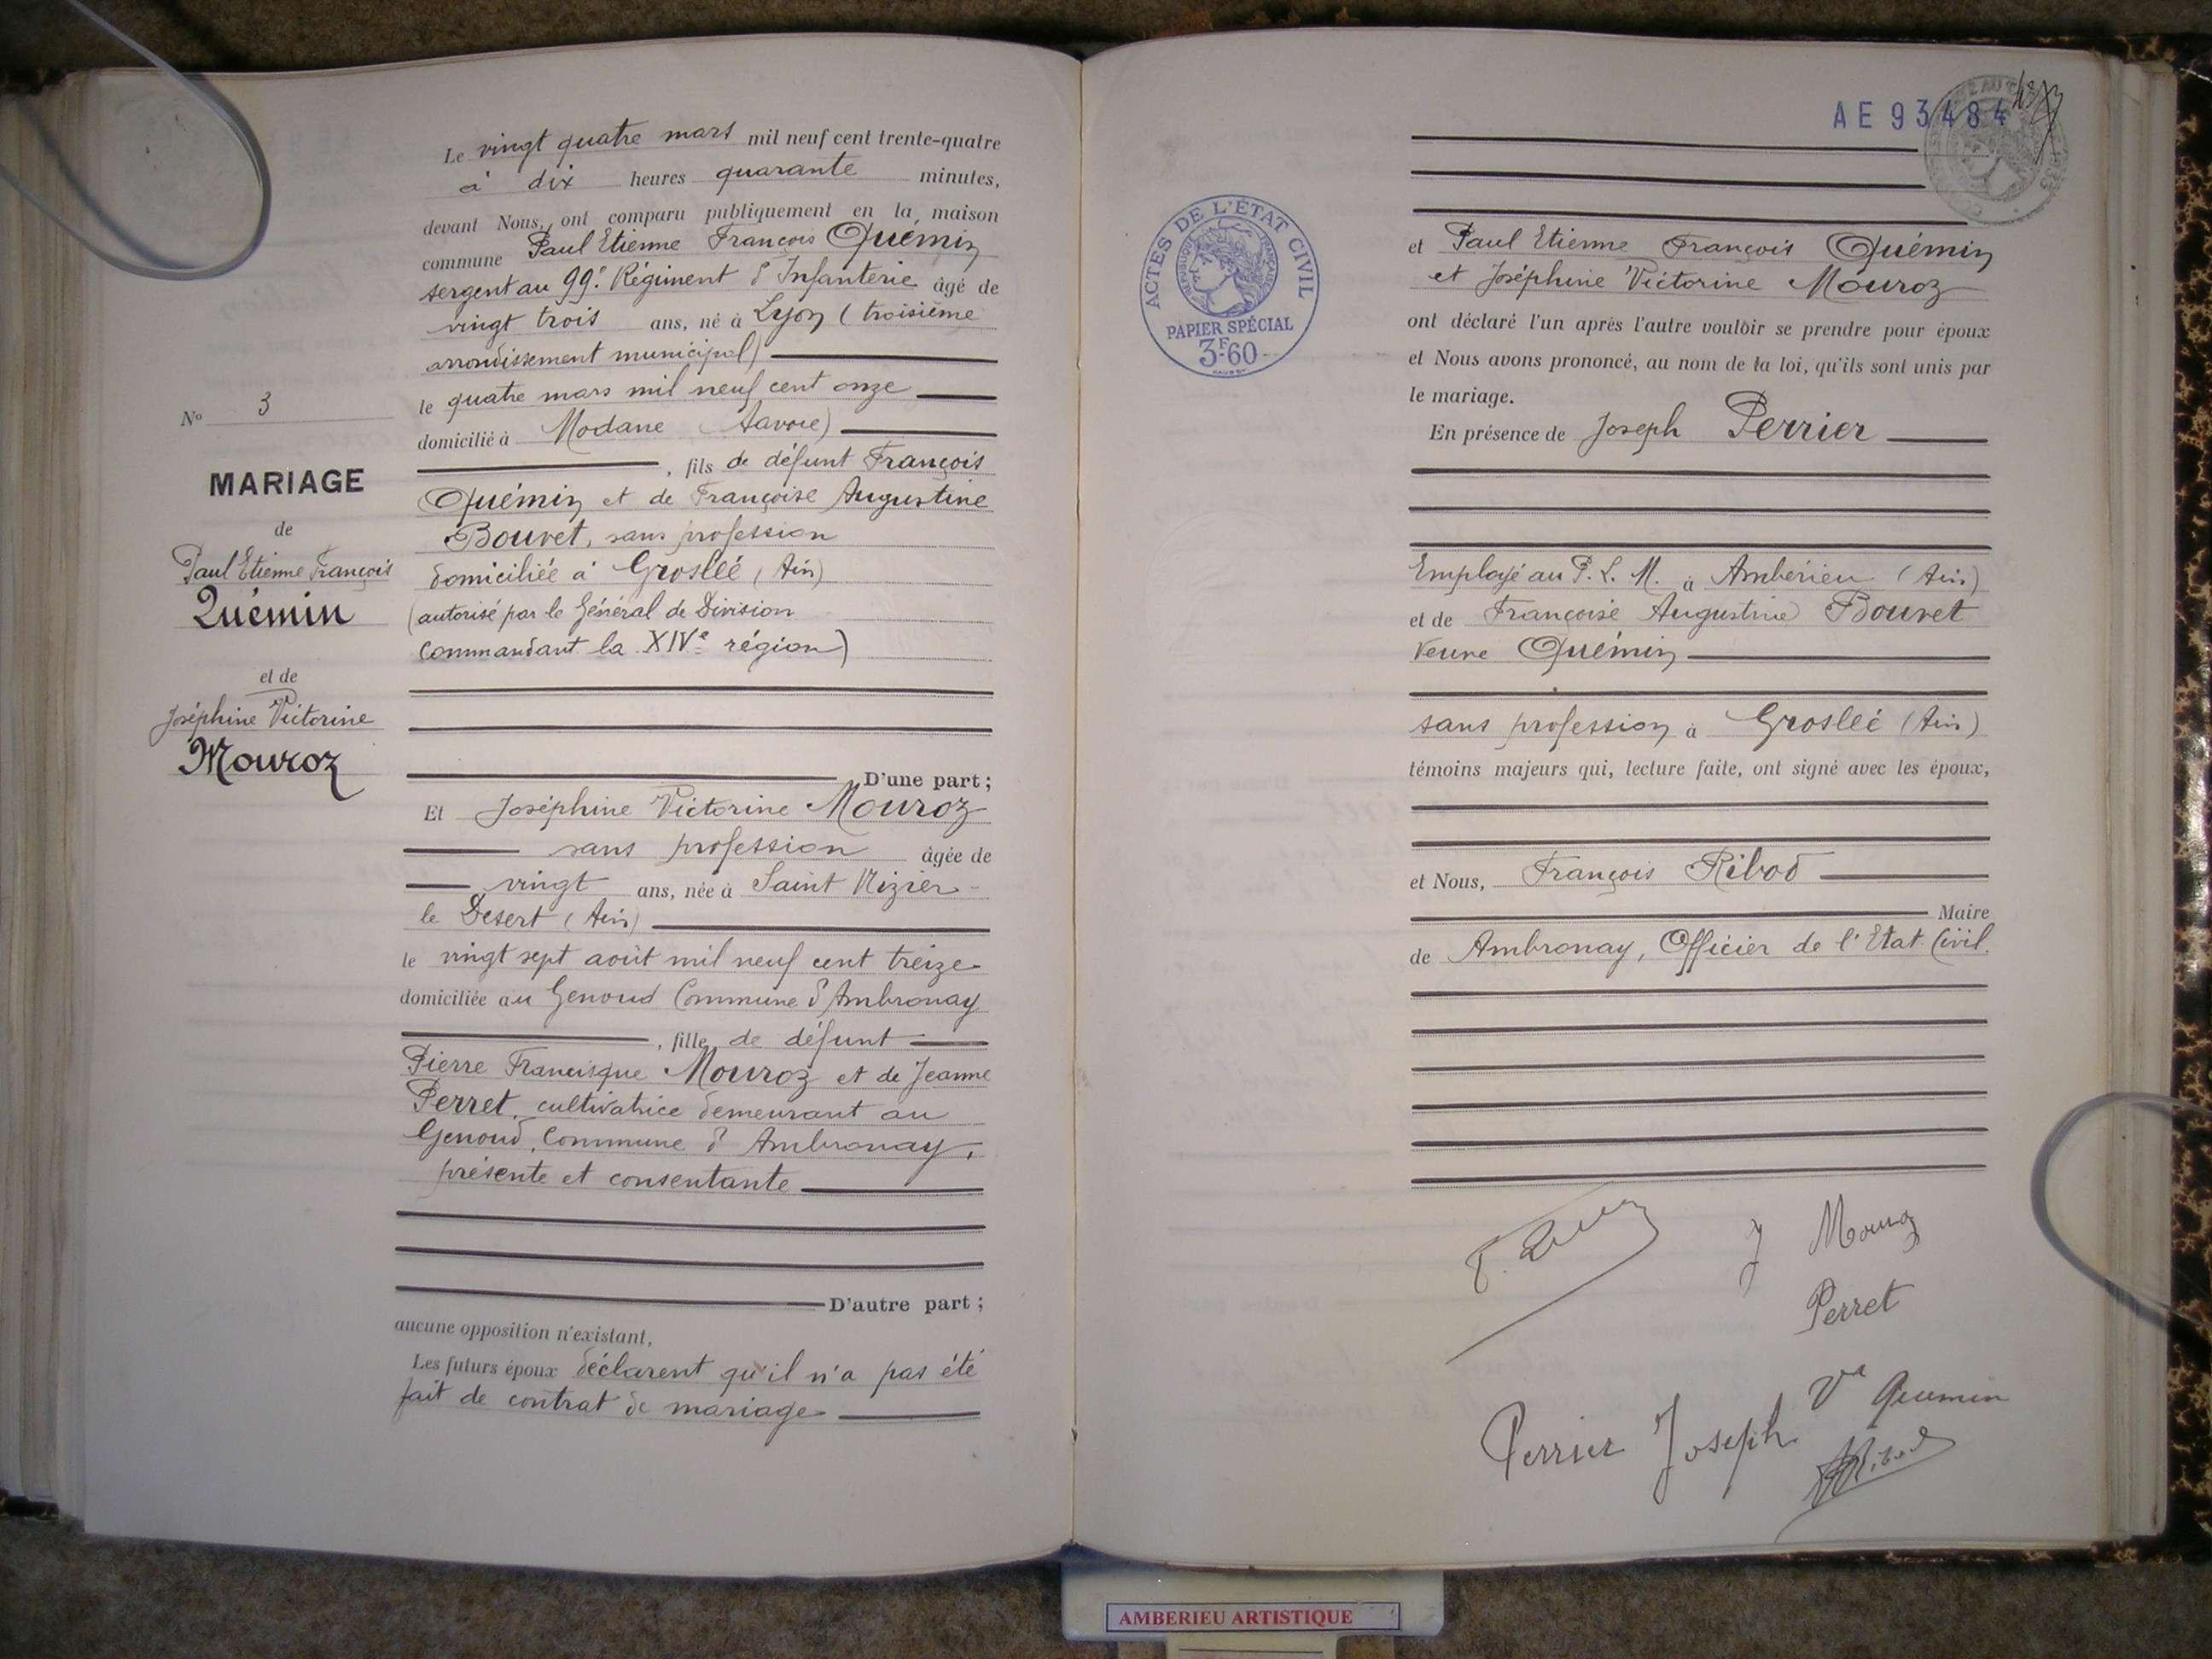 Le vingt quatre mars mil neuf cent trente-quatre
à dix heures quarante minutes,
devant Nous, ont comparu publiquement en la maison
commune Paul Etienne François Quémin
sergent au 99e Régiment d'Infanterie âgé de
vingt trois ans, né à Lyon (troisième
arrondissement municipal)
le quatre mars mil neuf cent onze
domicilié à Modane (Savoie)
, fils de défunt François
Quémin et de Françoise Augustine
Bouvet, sans profession
domiciliée à Groslée (Ain)
(autorisé par le Général de Division
Commandant la XIVe région)
D'une part ;
Et Joséphine Victorine Mouroz
sans profession âgée de
vingt ans, née à Saint Nizier
le Désert (Ain)
le vingt sept août mil neuf cent treize
domiciliée au Genoud Commune d'Ambronay
, fille de défunt
Pierre Francisque Mouroz et de Jeanne
Perret, cultivatrice demeurant au
Genoud, Commune d'Ambronay,
présente et consentante
D'autre part ;
aucune opposition n'existant,
Les futurs époux déclarent qu'il n'a pas été
fait de contrat de mariage
No 3
MARIAGE
de
Paul Etienne François
Quémin
et de
Joséphine Victorine
Mouroz
AE 93484
ACTES DE L'ÉTAT CIVIL
RÉPUBLIQUE FRANÇAISE
PAPIER SPÉCIAL
3F.60
et Paul Etienne François Quémin
et Joséphine Victorine Mouroz
ont déclaré l'un après l'autre vouloir se prendre pour époux
et Nous avons prononcé, au nom de la loi, qu'ils sont unis par
le mariage.
En présence de Joseph Perrier
Employé au P. L. M. à Ambérieu (Ain)
et de Françoise Augustine Bouvet
Veuve Quémin
sans profession à Groslée (Ain)
témoins majeurs qui, lecture faite, ont signé avec les époux,
et Nous, François Ribod
Maire
de Ambronay, Officier de l'Etat Civil.
J Mouroz
Perret
Vve Quemin
Perrier Joseph
Ribod
AMBERIEU ARTISTIQUE